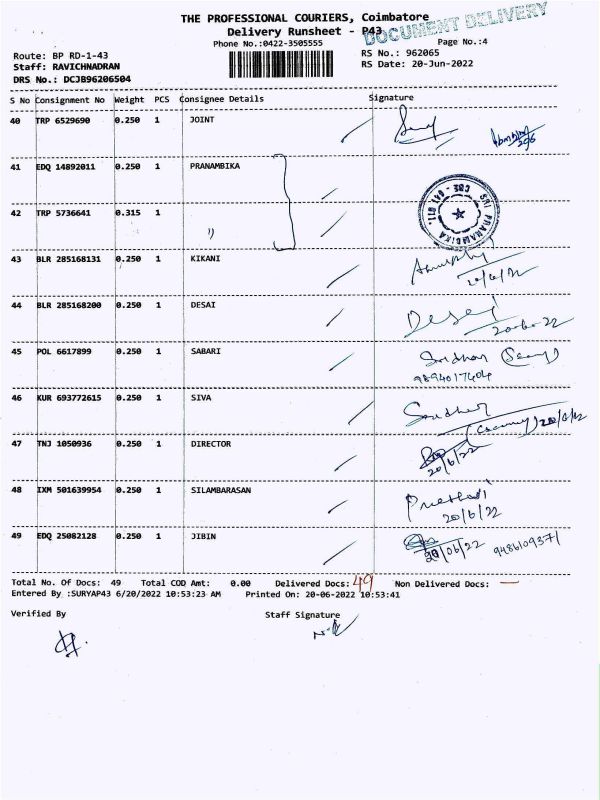 THE PROFESSIONAL COURIERS, Coimbatore
Delivery Runsheet - P43
DOCUMENT DELIVERY
Phone No.:0422-3505555
Page No.:4
Route: BP RD-1-43
RS No.: 962065
Staff: RAVICHNADRAN
RS Date: 20-Jun-2022
DRS No.: DCJB96206504
S No Consignment No Weight PCS Consignee Details Signature
40 TRP 6529690 0.250 1 JOINT
41 EDQ 14892011 0.250 1 PRANAMBIKA
SRI PRANAMBIKA CBE - 641 011.
42 TRP 5736641 0.315 1 "
43 BLR 285168131 0.250 1 KIKANI
20/6/22
44 BLR 285168200 0.250 1 DESAI Desai
20-6-22
45 POL 6617899 0.250 1 SABARI Sridhar
9894017404
46 KUR 693772615 0.250 1 SIVA Sridhar
20/6/22
47 TNJ 1050936 0.250 1 DIRECTOR
20/6/22
48 IXM 501639954 0.250 1 SILAMBARASAN
20/6/22
49 EDQ 25082128 0.250 1 JIBIN
20/06/22 9486109371
Total No. Of Docs: 49 Total COD Amt: 0.00 Delivered Docs: 49 Non Delivered Docs: —
Entered By :SURYAP43 6/20/2022 10:53:23 AM Printed On: 20-06-2022 10:53:41
Verified By Staff Signature